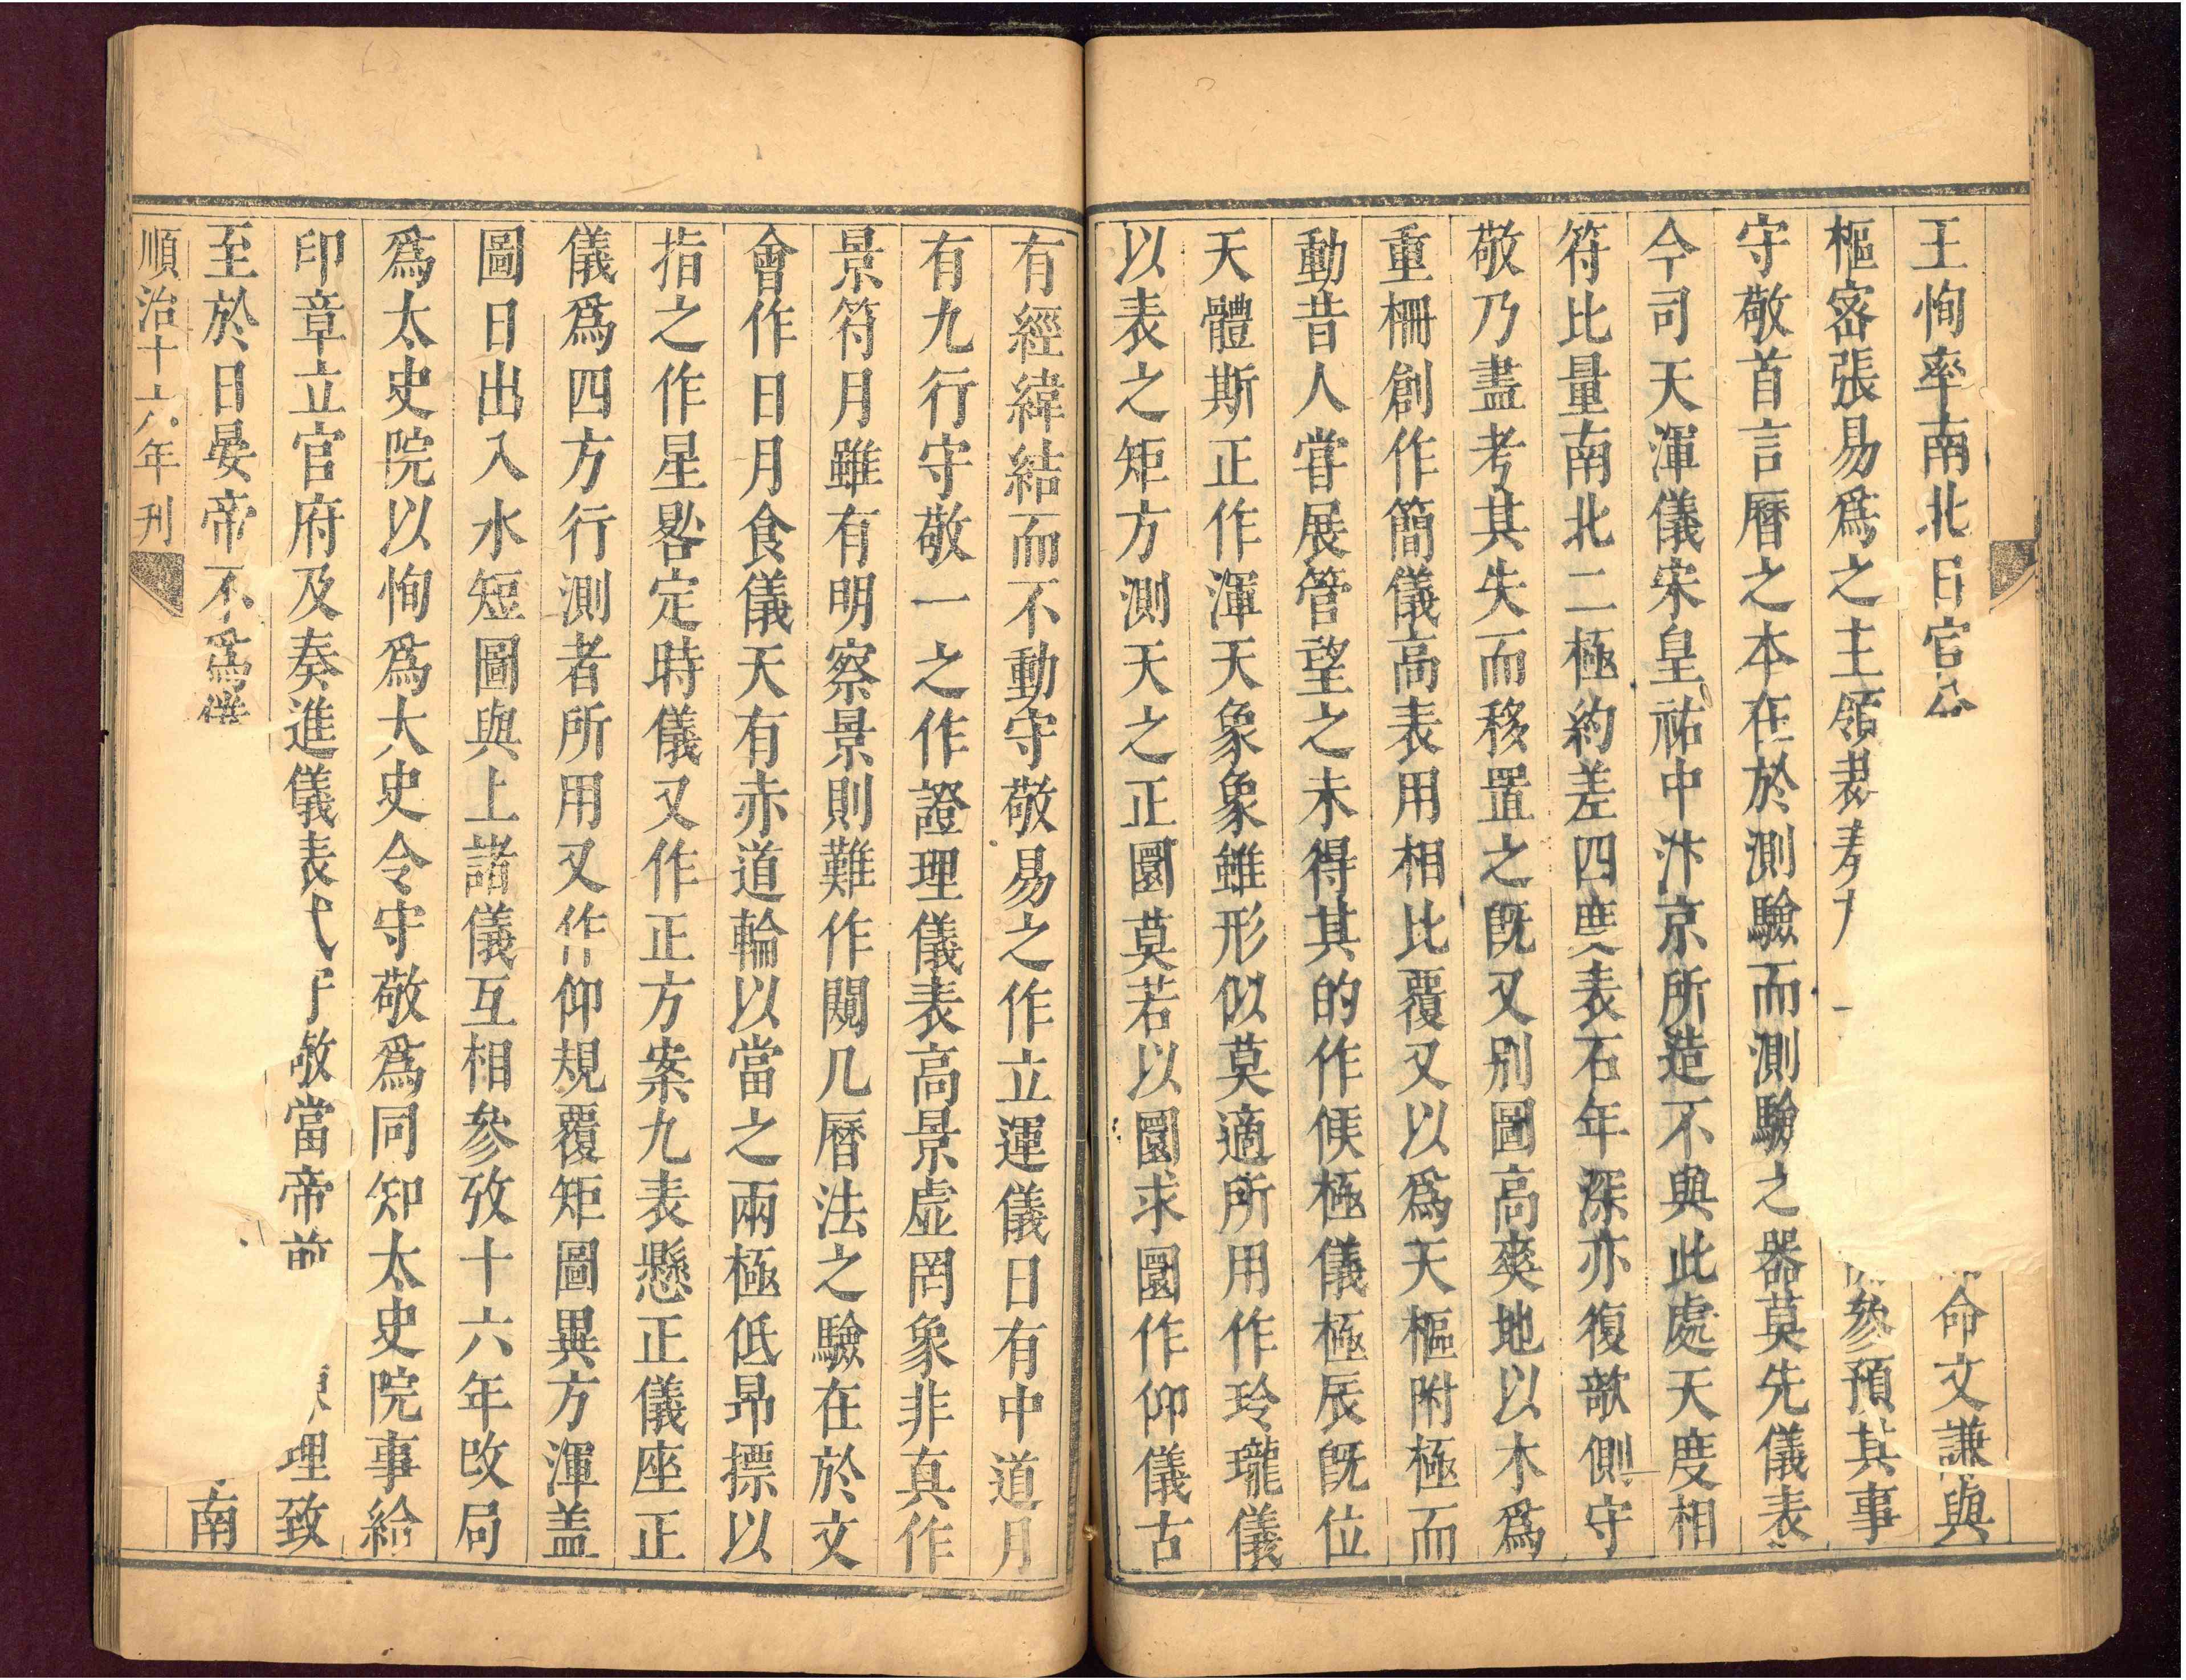 王恂率南北日官 命文謙與
樞密張易爲之主領裁奏 參預其事
守敬首言曆之本在於測驗而測驗之器莫先儀表
今司天渾儀宋皇祐中汴京所造不與此處天度相
符比量南北二極約差四度表石年深亦復欹側守
敬乃盡考其失而移置之旣又别圖高爽地以木爲
重柵創作簡儀高表用相比覆又以爲天樞附極而
動昔人甞展管望之未得其的作候極儀極辰旣位
天體斯正作渾天象象雖形似莫適所用作玲瓏儀
以表之矩方測天之正圜莫若以圜求圜作仰儀古
有經緯結而不動守敬易之作立運儀日有中道月
有九行守敬一之作證理儀表高景虛罔象非真作
景符月雖有明察景則難作闚几曆法之驗在於文
會作日月食儀天有赤道輪以當之兩極低昂摽以
指之作星晷定時儀又作正方案九表懸正儀座正
儀爲四方行測者所用又作仰規覆矩圖異方渾盖
圖日出入水短圖與上諸儀互相參攷十六年改局
爲太史院以恂爲大史令守敬爲同知太史院事給
印章立官府及奏進儀表式守敬當帝前 理致
至於日晏帝不爲 南
順治十六年刊